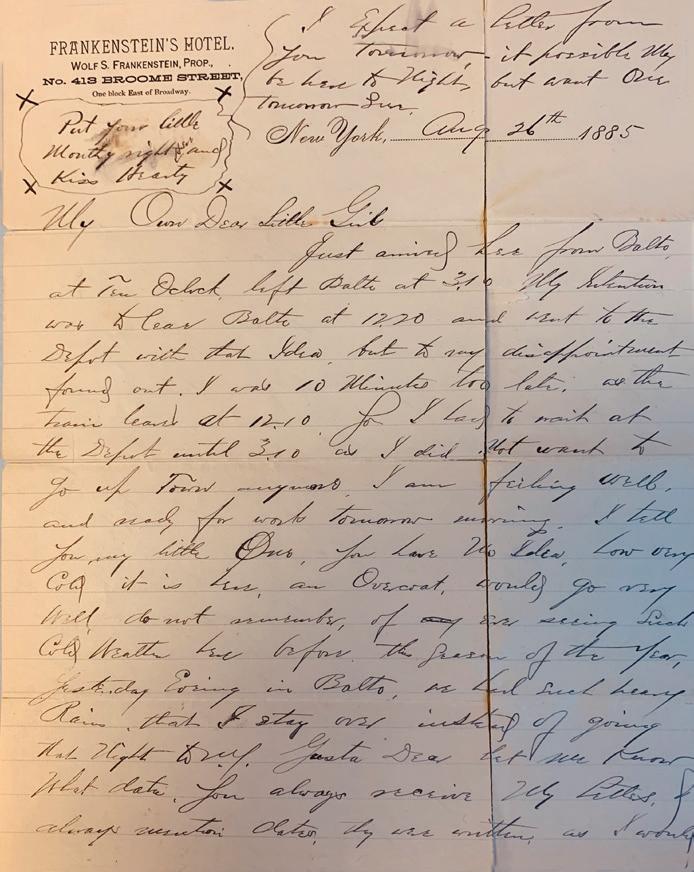 FRANKENSTEIN'S HOTEL.
WOLF S. FRANKENSTEIN, PROP.,
No. 413 BROOME STREET,
One block East of Broadway.
Put your little
Mouthy right and
Kiss Hearty
I Expect a letter from
You Tomorrow, it possible May
be here to Night, but want One
tomorrow Sure.
New York, Aug 26th 1885
My Own Dear Little Girl
Just arrived here from Balto,
at Ten Oclock, left Balto at 3.10 My Intention
was to leave Balto at 12.20 and went to the
Depot with that Idea, but to my disappointment
found out. I was 10 Minutes too late, as the
train leaves at 12.10. So I had to wait at
the Depot until 3.10 as I did Not want to
go up Town anymore, I am feeling well,
and ready for work tomorrow morning. I tell
You, my little One, You have No Idea, how very
Cold it is here, an Overcoat, would go very
Well, do not remember, of ever seeing Such
Cold Weather here before the Season of the Year,
Yesterday Evening in Balto, we had such heavy
Rains, that I stay over instead of going
that Night to N.Y. Gusta Dear let me Know
What date, You always receive My letters, &
always mention dates, they were written, as I would